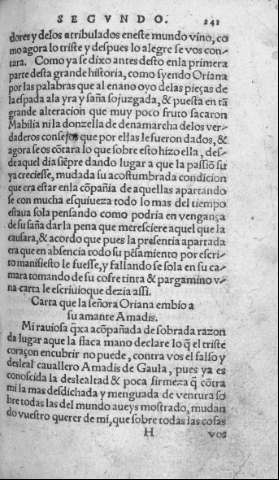 SEGVNDO. 241
dores y delos atribulados eneste mundo vino, co
mo agora lo triste y despues lo alegre se vos con-
tara. Como ya se dixo antes desto enla primera
parte desta grande historia, como syendo Oriana
por las palabras que al enano oyo delas pieças de
la espada ala yra y saña sojuzgada, & puesta en tã
grande alteracion que muy poco fruto sacaron
Mabilia ni la donzella de denamarcha delos ver-
daderos consejos que por ellas le fueron dados, &
agora se os cõtara lo que sobre esto hizo ella, des-
de aquel dia siẽpre dando lugar a que la passiõ su
ya creciesse, mudada su acostumbrada condicion
que era estar enla cõpañia de aquellas apartando
se con mucha esquiueza todo lo mas del tiempo
estaua sola pensando como podria en vengança
de su saña dar la pena que meresciere aquel que la
causara, & acordo que pues la presencia apartada
era que en absencia todo su pẽsamiento por escri-
to manifiesto le fuesse, y fallando se sola en su ca-
mara tomando de su cofre tinta & pargamino v-
na carta le escriuio que dezia assi.
Carta que la señora Oriana embio a
su amante Amadis.
Mi rauiosa q̃xa acõpañada de sobrada razon
da lugar aque la flaca mano declare lo q̃ el triste
coraçon encubrir no puede, contra vos el falso y
desleal cauallero Amadis de Gaula, pues ya es
conoscida la deslealtad & poca firmeza q̃ cõtra
mi la mas desdichada y menguada de ventura so
bre todas las del mundo aueys mostrado, mudan
do vuestro querer de mi, que sobre todas las cosas
H vos